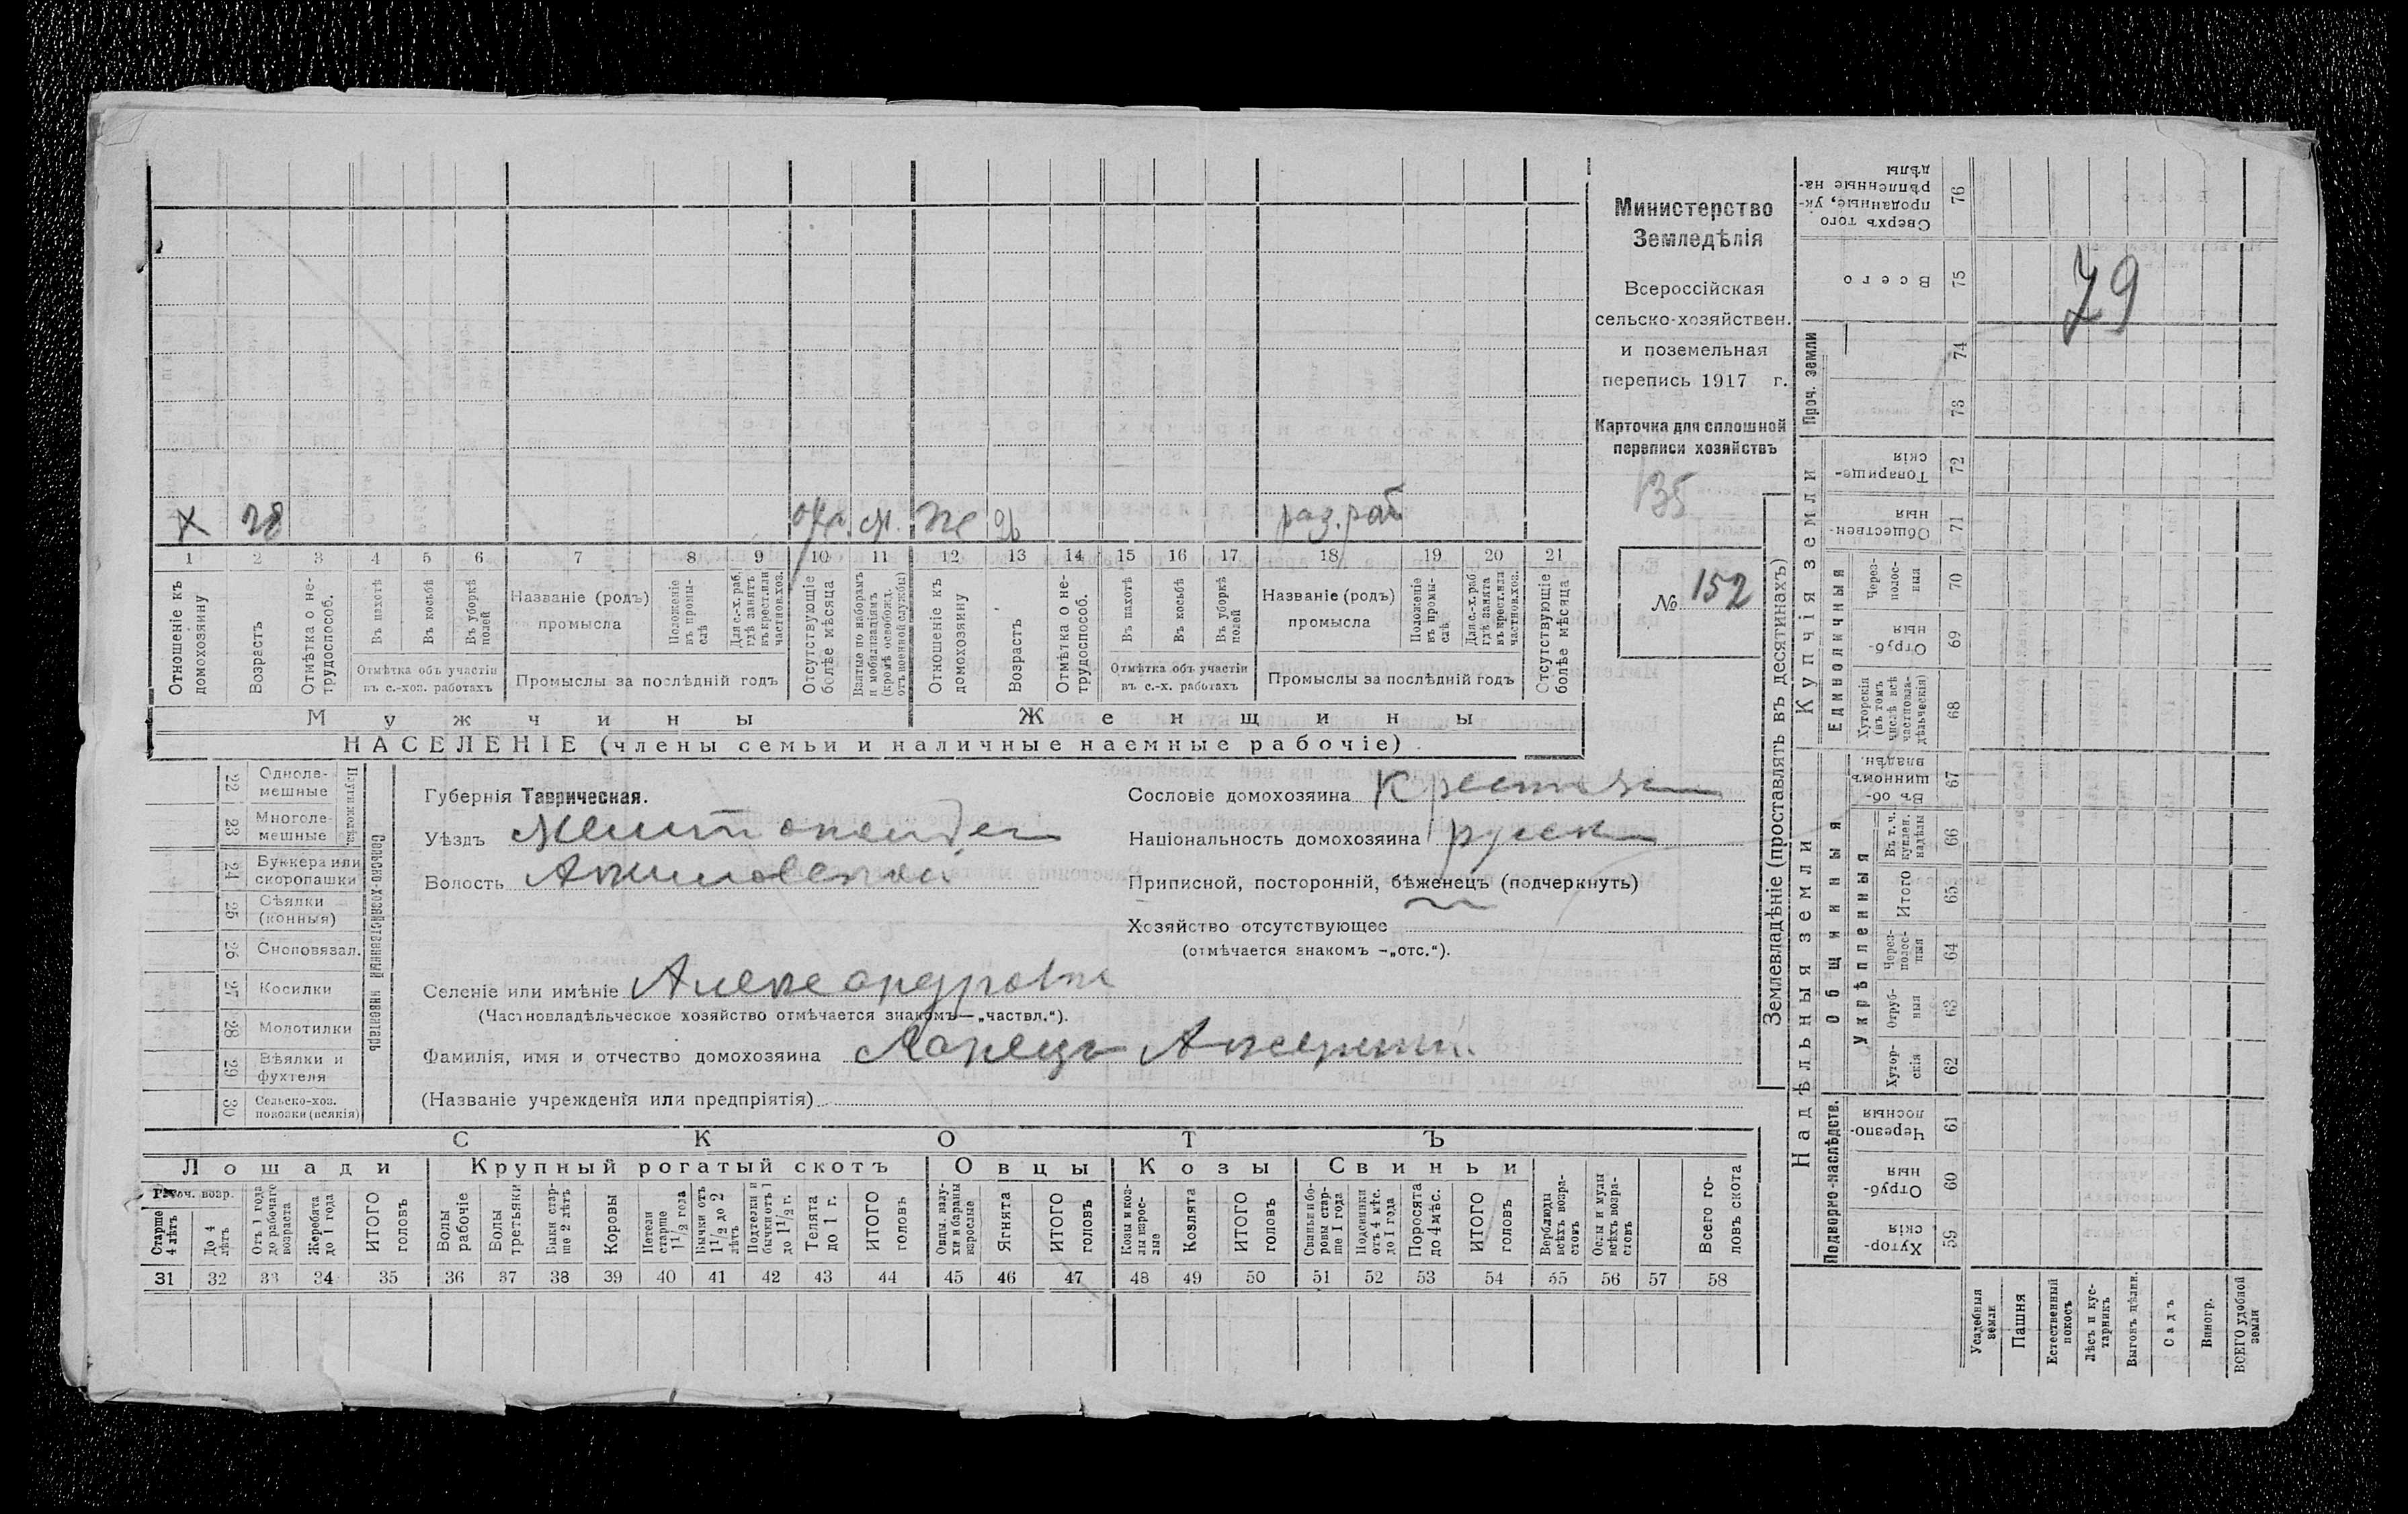 Министерство
Земледѣлія
Всероссійская
сельско-хозяйствен.
и поземельная
перепись 1917 г.
Карточка для сплошной
переписи хозяйствъ
135
№ 152
79
х 28 м. же 26 раз. раб
1 2 3 4 5 6 7 8 9 10 11 12 13 14 15 16 17 18 19 20 21
Отношеніе къ домохозяину
Возрастъ
Отмѣтка о не-трудоспособ.
Въ пахотѣ
Въ косьбѣ
Въ уборкѣ полей
Отмѣтка объ участіи
въ с.-хоз. работахъ
Названіе (родъ)
промысла
Положеніе въ промы-слѣ
Для с.-х. раб. гдѣ занятъ въ крест. или частнов. хоз.
Промыслы за послѣдній годъ
Отсутствующіе болѣе мѣсяца
Взятые по наборамъ и мобилизаціямъ (кромѣ освобожд. отъ военной службы)
Отношеніе къ домохозяину
Возрастъ
Отмѣтка о не-трудоспособ.
Въ пахотѣ
Въ косьбѣ
Въ уборкѣ полей
Отмѣтка объ участіи
въ с.-х. работахъ
Названіе (родъ)
промысла
Положеніе въ промы-слѣ
Для с.-х. раб гдѣ занята въ крест. или частнов. хоз.
Промыслы за послѣдній годъ
Отсутствующіе болѣе мѣсяца
Мужчины Женщины
НАСЕЛЕНІЕ (члены семьи и наличные наемные рабочіе).
Сельско-хозяйственный инвентарь
22 Одноле-мешные
23 Многоле-мешные
24 Буккера или скоропашки
25 Сѣялки (конныя)
26 Сноповязал.
27 Косилки
28 Молотилки
29 Вѣялки и фухтеля
30 Сельско-хоз. повозки (всякія)
Губернія Таврическая.
Уѣздъ
Волость
Сословіе домохозяина
Національность домохозяина
Приписной, посторонній, бѣженецъ (подчеркнуть)
Хозяйство отсутствующее
(отмѣчается знакомъ -„отс.“).
Селеніе или имѣніе
(Частновладѣльческое хозяйство отмѣчается знакомъ—„частвл.“).
Фамилія, имя и отчество домохозяина
(Названіе учрежденія или предпріятія)
СКОТЪ
Лошади Крупный рогатый скотъ Овцы Козы Свиньи
Рабоч. возр.
Старше 4 лѣтъ
До 4 лѣтъ
Отъ 1 года до рабочаго возраста
Жеребята до 1 года
ИТОГО головъ
Волы рабочіе
Волы третьяки
Быки стар-ше 2 лѣтъ
Коровы
Нетели старше 1½ года
Бычки отъ 1½ до 2 лѣтъ
Подтелки и бычки отъ 1 до 1½ г.
Телята до 1 г.
ИТОГО головъ
Овцы, валу-хи и бараны взрослые
Ягнята
ИТОГО головъ
Козы и коз-лы взрос-лые
Козлята
ИТОГО головъ
Свиньи и бо-ровы стар-ше 1 года
Подсвинки отъ 4 мѣс. до 1 года
Поросята до 4 мѣс.
ИТОГО головъ
Верблюды всѣхъ возра-стовъ
Ослы и мулы всѣхъ возра-стовъ
Всего го-ловъ скота
31 32 33 34 35 36 37 38 39 40 41 42 43 44 45 46 47 48 49 50 51 52 53 54 55 56 57 58
Землевладѣніе (проставлять въ десятинахъ)
Надѣльныя земли Купчія земли Проч. земли
Подворно-наслѣдств.
Общинныя
Укрѣпленныя
Единоличныя
Сверхъ того проданные, ук-рѣпленные на-дѣлы 76
Всего 75
74
73
Товарище-скія 72
Обществен-ныя 71
Через-полос-ныя 70
Отруб-ныя 69
Хуторскія (въ томъ числѣ всѣ частновла-дѣльческія) 68
Въ об-щинномъ владѣн. 67
Въ т. ч. куплен. надѣлы 66
Итого 65
Через-полос-ныя 64
Отруб-ныя 63
Хутор-скія 62
Черезпо-лосныя 61
Отруб-ныя 60
Хутор-скія 59
Усадебныя земли
Пашня
Естественный покосъ
Лѣсъ и кус-тарникъ
Выгонъ цѣлин.
Садъ
Виногр.
ВСЕГО удобной земли